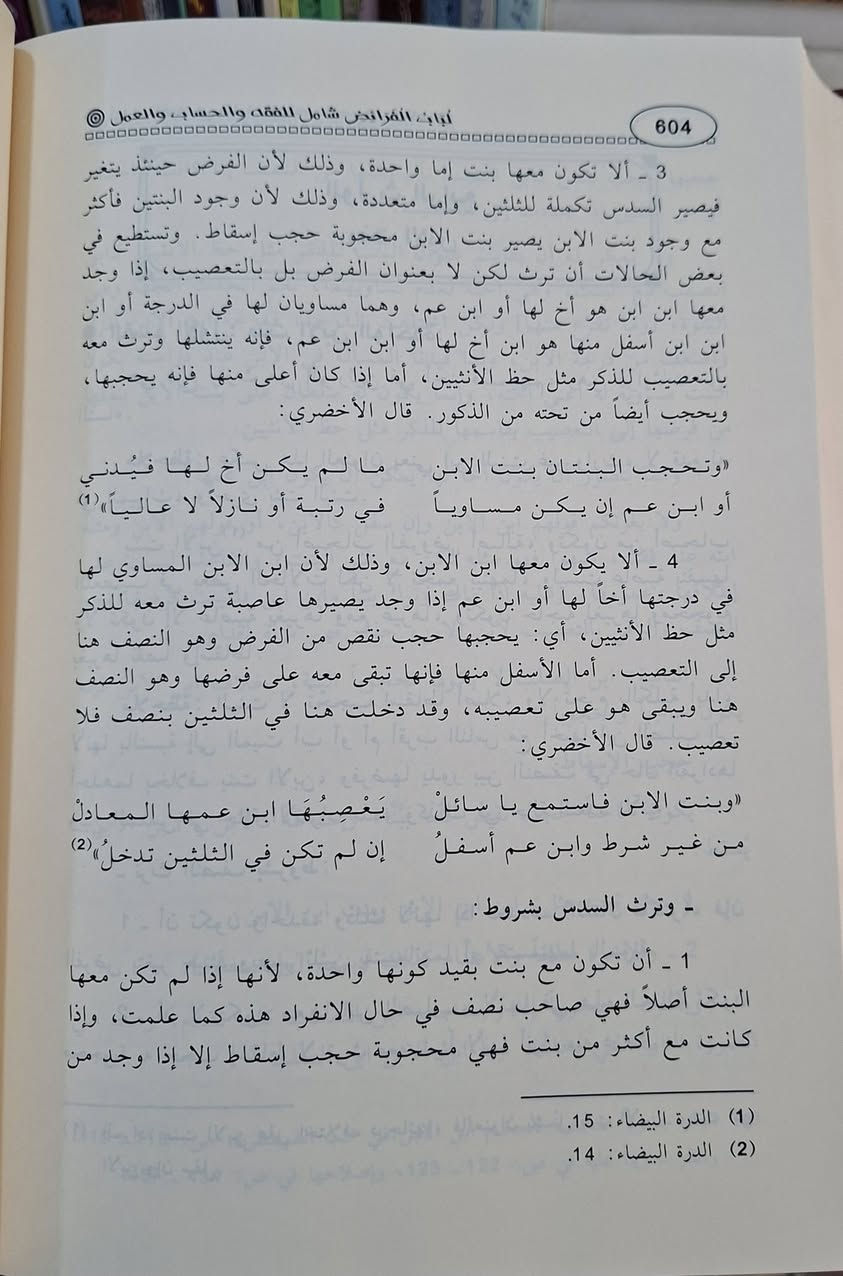 604
لباب الفرائض شامل للفقه والحساب والعمل
3 ـ ألا تكون معها بنت إما واحدة، وذلك لأن الفرض حينئذ يتغير
فيصير السدس تكملة للثلثين، وإما متعددة، وذلك لأن وجود البنتين فأكثر
مع وجود بنت الابن يصير بنت الابن محجوبة حجب إسقاط. وتستطيع في
بعض الحالات أن ترث لكن لا بعنوان الفرض بل بالتعصيب، إذا وجد
معها ابن ابن هو أخ لها أو ابن عم، وهما مساويان لها في الدرجة أو ابن
ابن ابن أسفل منها هو ابن أخ لها أو ابن ابن عم، فإنه ينتشلها وترث معه
بالتعصيب للذكر مثل حظ الأنثيين، أما إذا كان أعلى منها فإنه يحجبها،
ويحجب أيضاً من تحته من الذكور. قال الأخضري:
«وتحجب البنتان بنت الابن ما لم يكن أخ لها فيُدني
أو ابن عم إن يكن مساوياً في رتبة أو نازلاً لا عالياً»(1)
4 ـ ألا يكون معها ابن الابن، وذلك لأن ابن الابن المساوي لها
في درجتها أخاً لها أو ابن عم إذا وجد يصيرها عاصبة ترث معه للذكر
مثل حظ الأنثيين، أي: يحجبها حجب نقص من الفرض وهو النصف هنا
إلى التعصيب. أما الأسفل منها فإنها تبقى معه على فرضها وهو النصف
هنا ويبقى هو على تعصيبه، وقد دخلت هنا في الثلثين بنصف فلا
تعصيب. قال الأخضري:
«وبنت الابن فاستمع يا سائلْ يَعْصِبُهَا ابن عمها المعادلْ
من غير شرط وابن عم أسفلُ إن لم تكن في الثلثين تدخلُ»(2)
ـ وترث السدس بشروط:
1 ـ أن تكون مع بنت بقيد كونها واحدة، لأنها إذا لم تكن معها
البنت أصلاً فهي صاحب نصف في حال الانفراد هذه كما علمت، وإذا
كانت مع أكثر من بنت فهي محجوبة حجب إسقاط إلا إذا وجد من
(1) الدرة البيضاء: 15.
(2) الدرة البيضاء: 14.